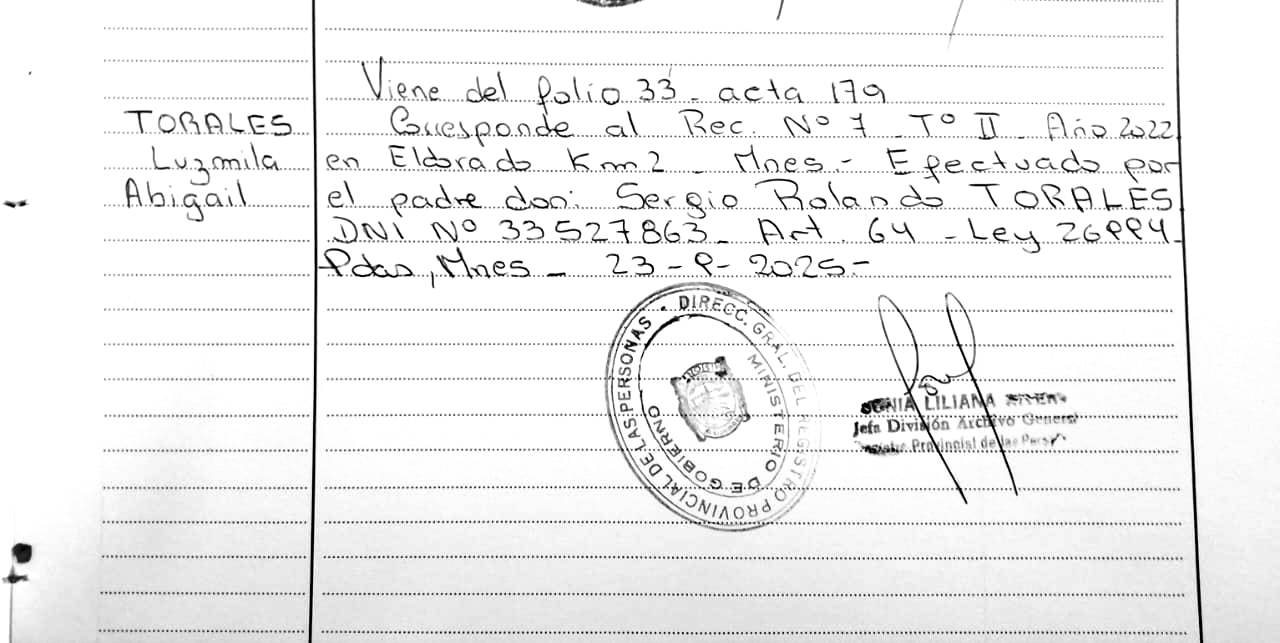 Viene del folio 33 - acta 179
TORALES
Luzmila
Abigail
Corresponde al Rec. Nº 7 - Tº II - Año 2022
en Eldorado Km 2 - Mnes.- Efectuado por
el padre don: Sergio Rolando TORALES
DNI Nº 33527863 - Art. 64 - Ley 26994 -
Pdas, Mnes - 23 - 9 - 2025 -
DIRECC. GRAL. DEL REGISTRO PROVINCIAL DE LAS PERSONAS
MINISTERIO DE GOBIERNO
SONIA LILIANA
Jefa División Archivo General
Provincial de las